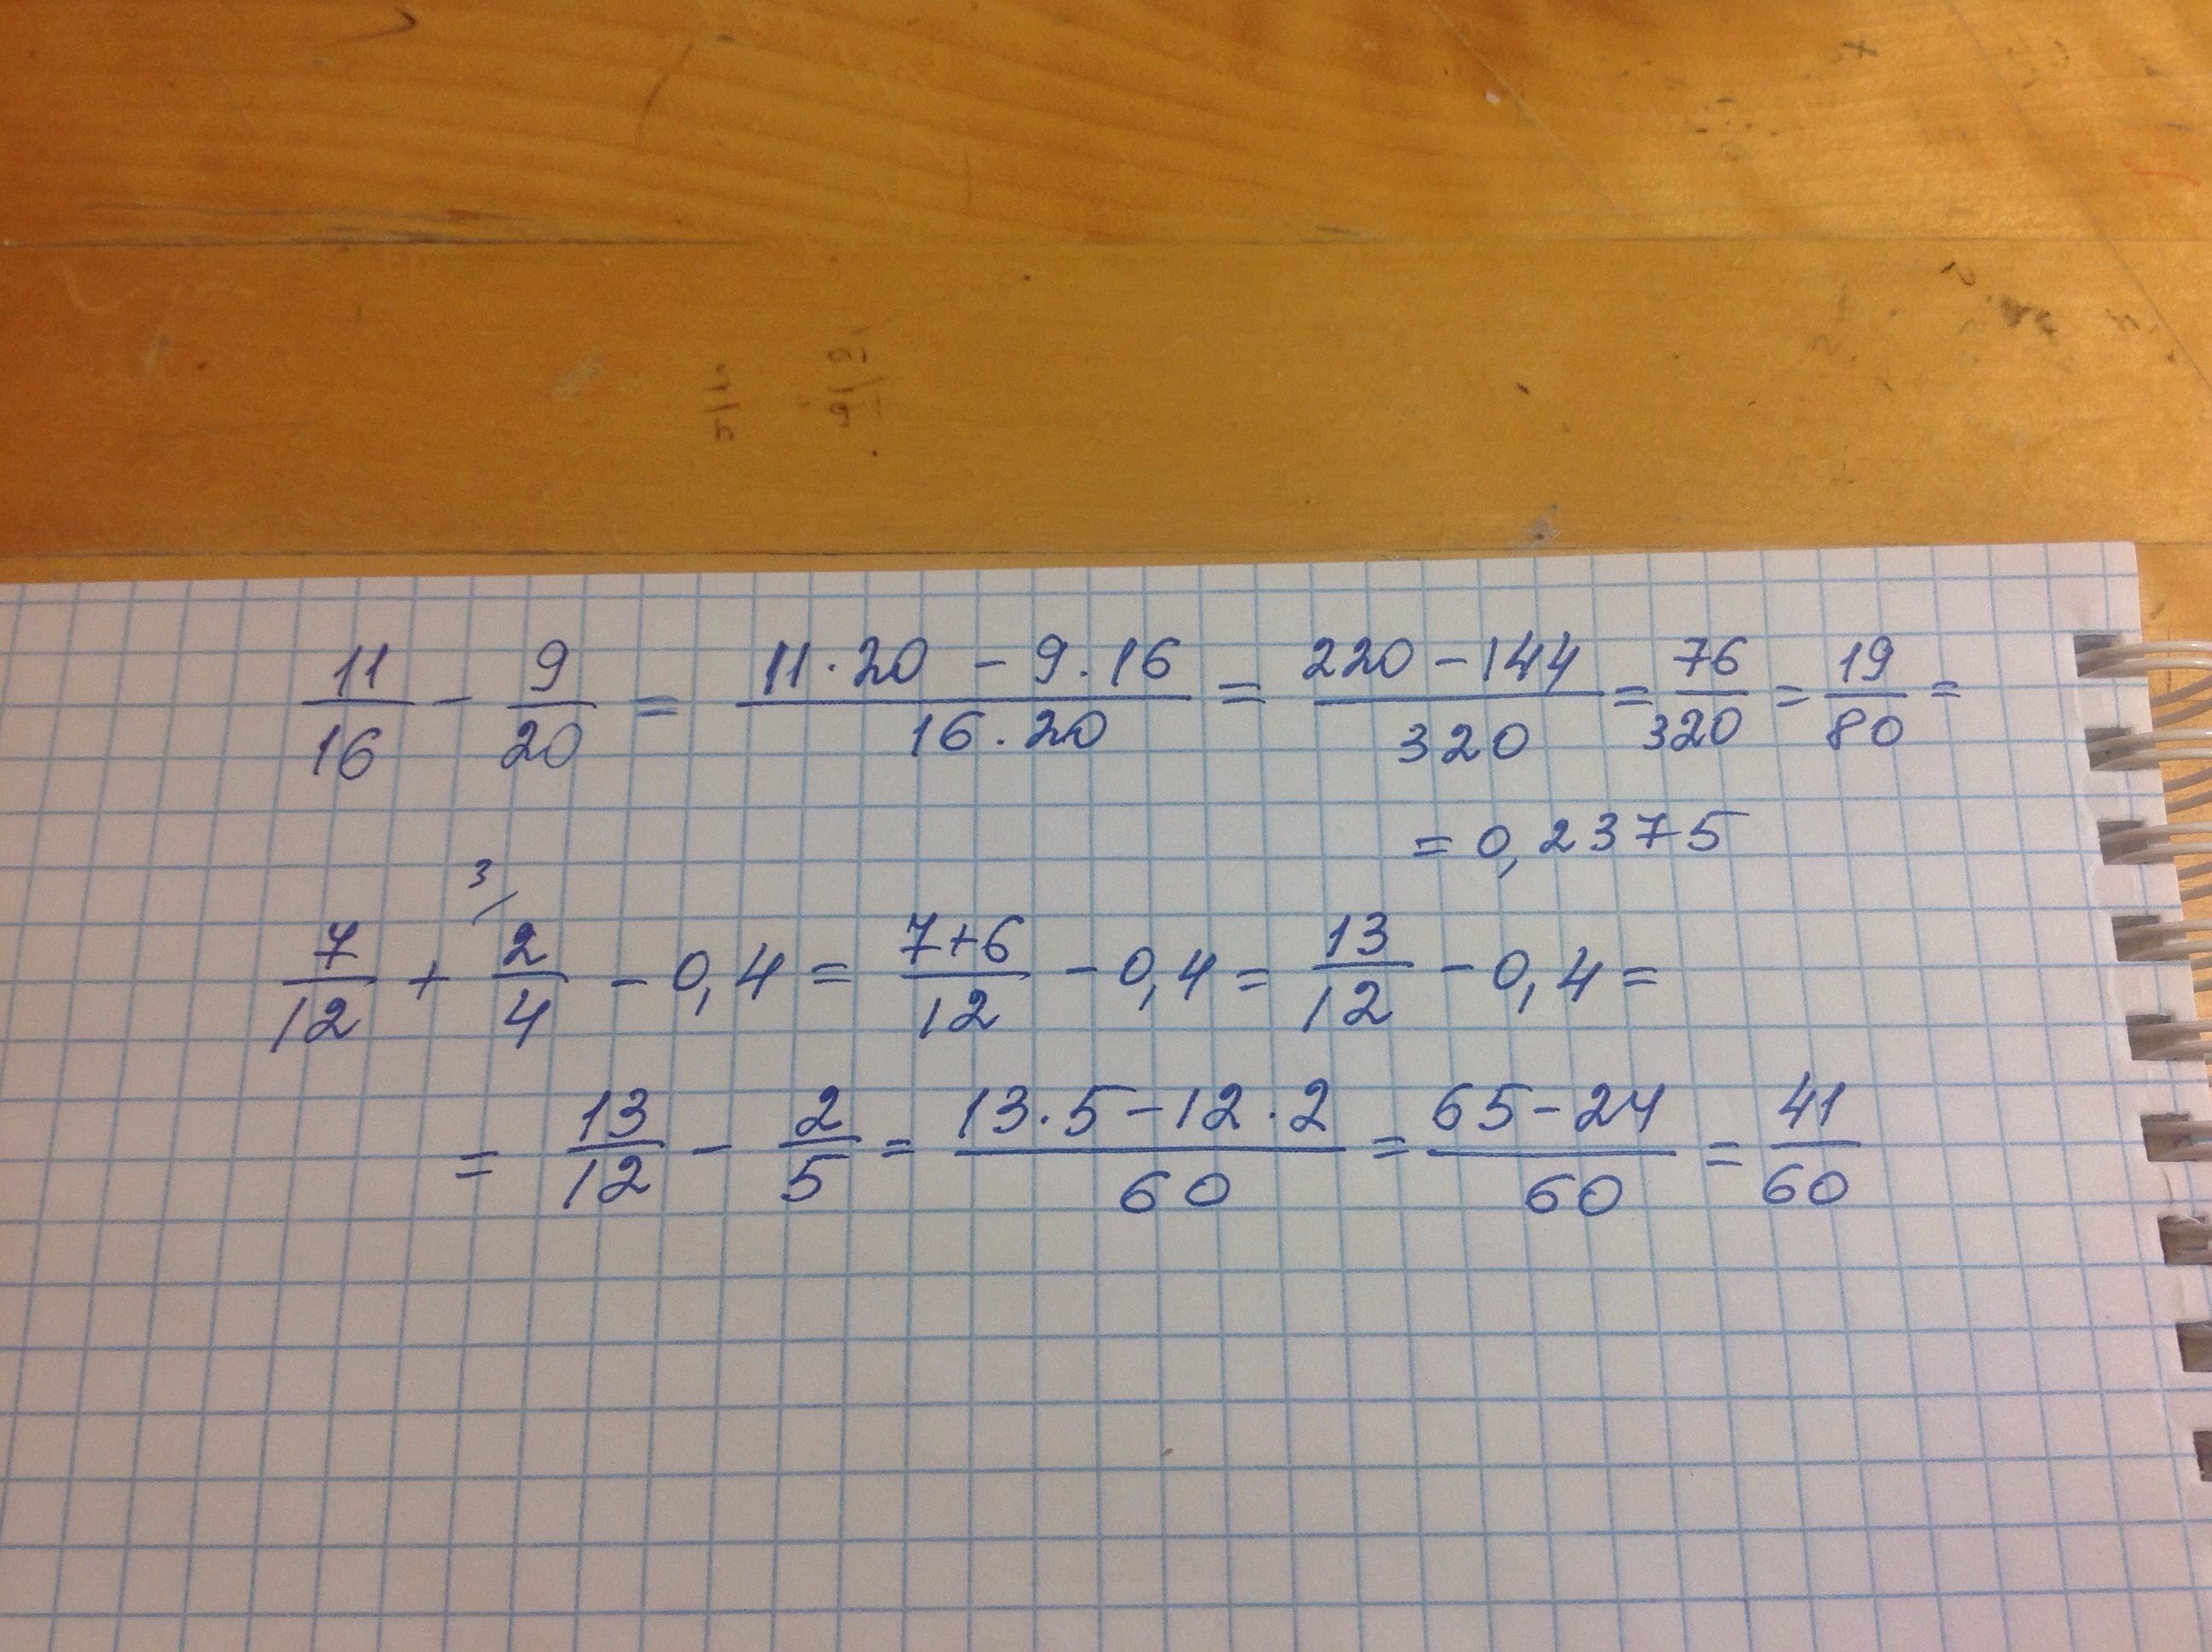 11/16 - 9/20 = (11·20 - 9·16)/(16·20) = (220 - 144)/320 = 76/320 = 19/80 =
= 0,2375
7/12 + 2/4 (3/ - 0,4 = (7+6)/12 - 0,4 = 13/12 - 0,4 =
= 13/12 - 2/5 = (13·5 - 12·2)/60 = (65 - 24)/60 = 41/60